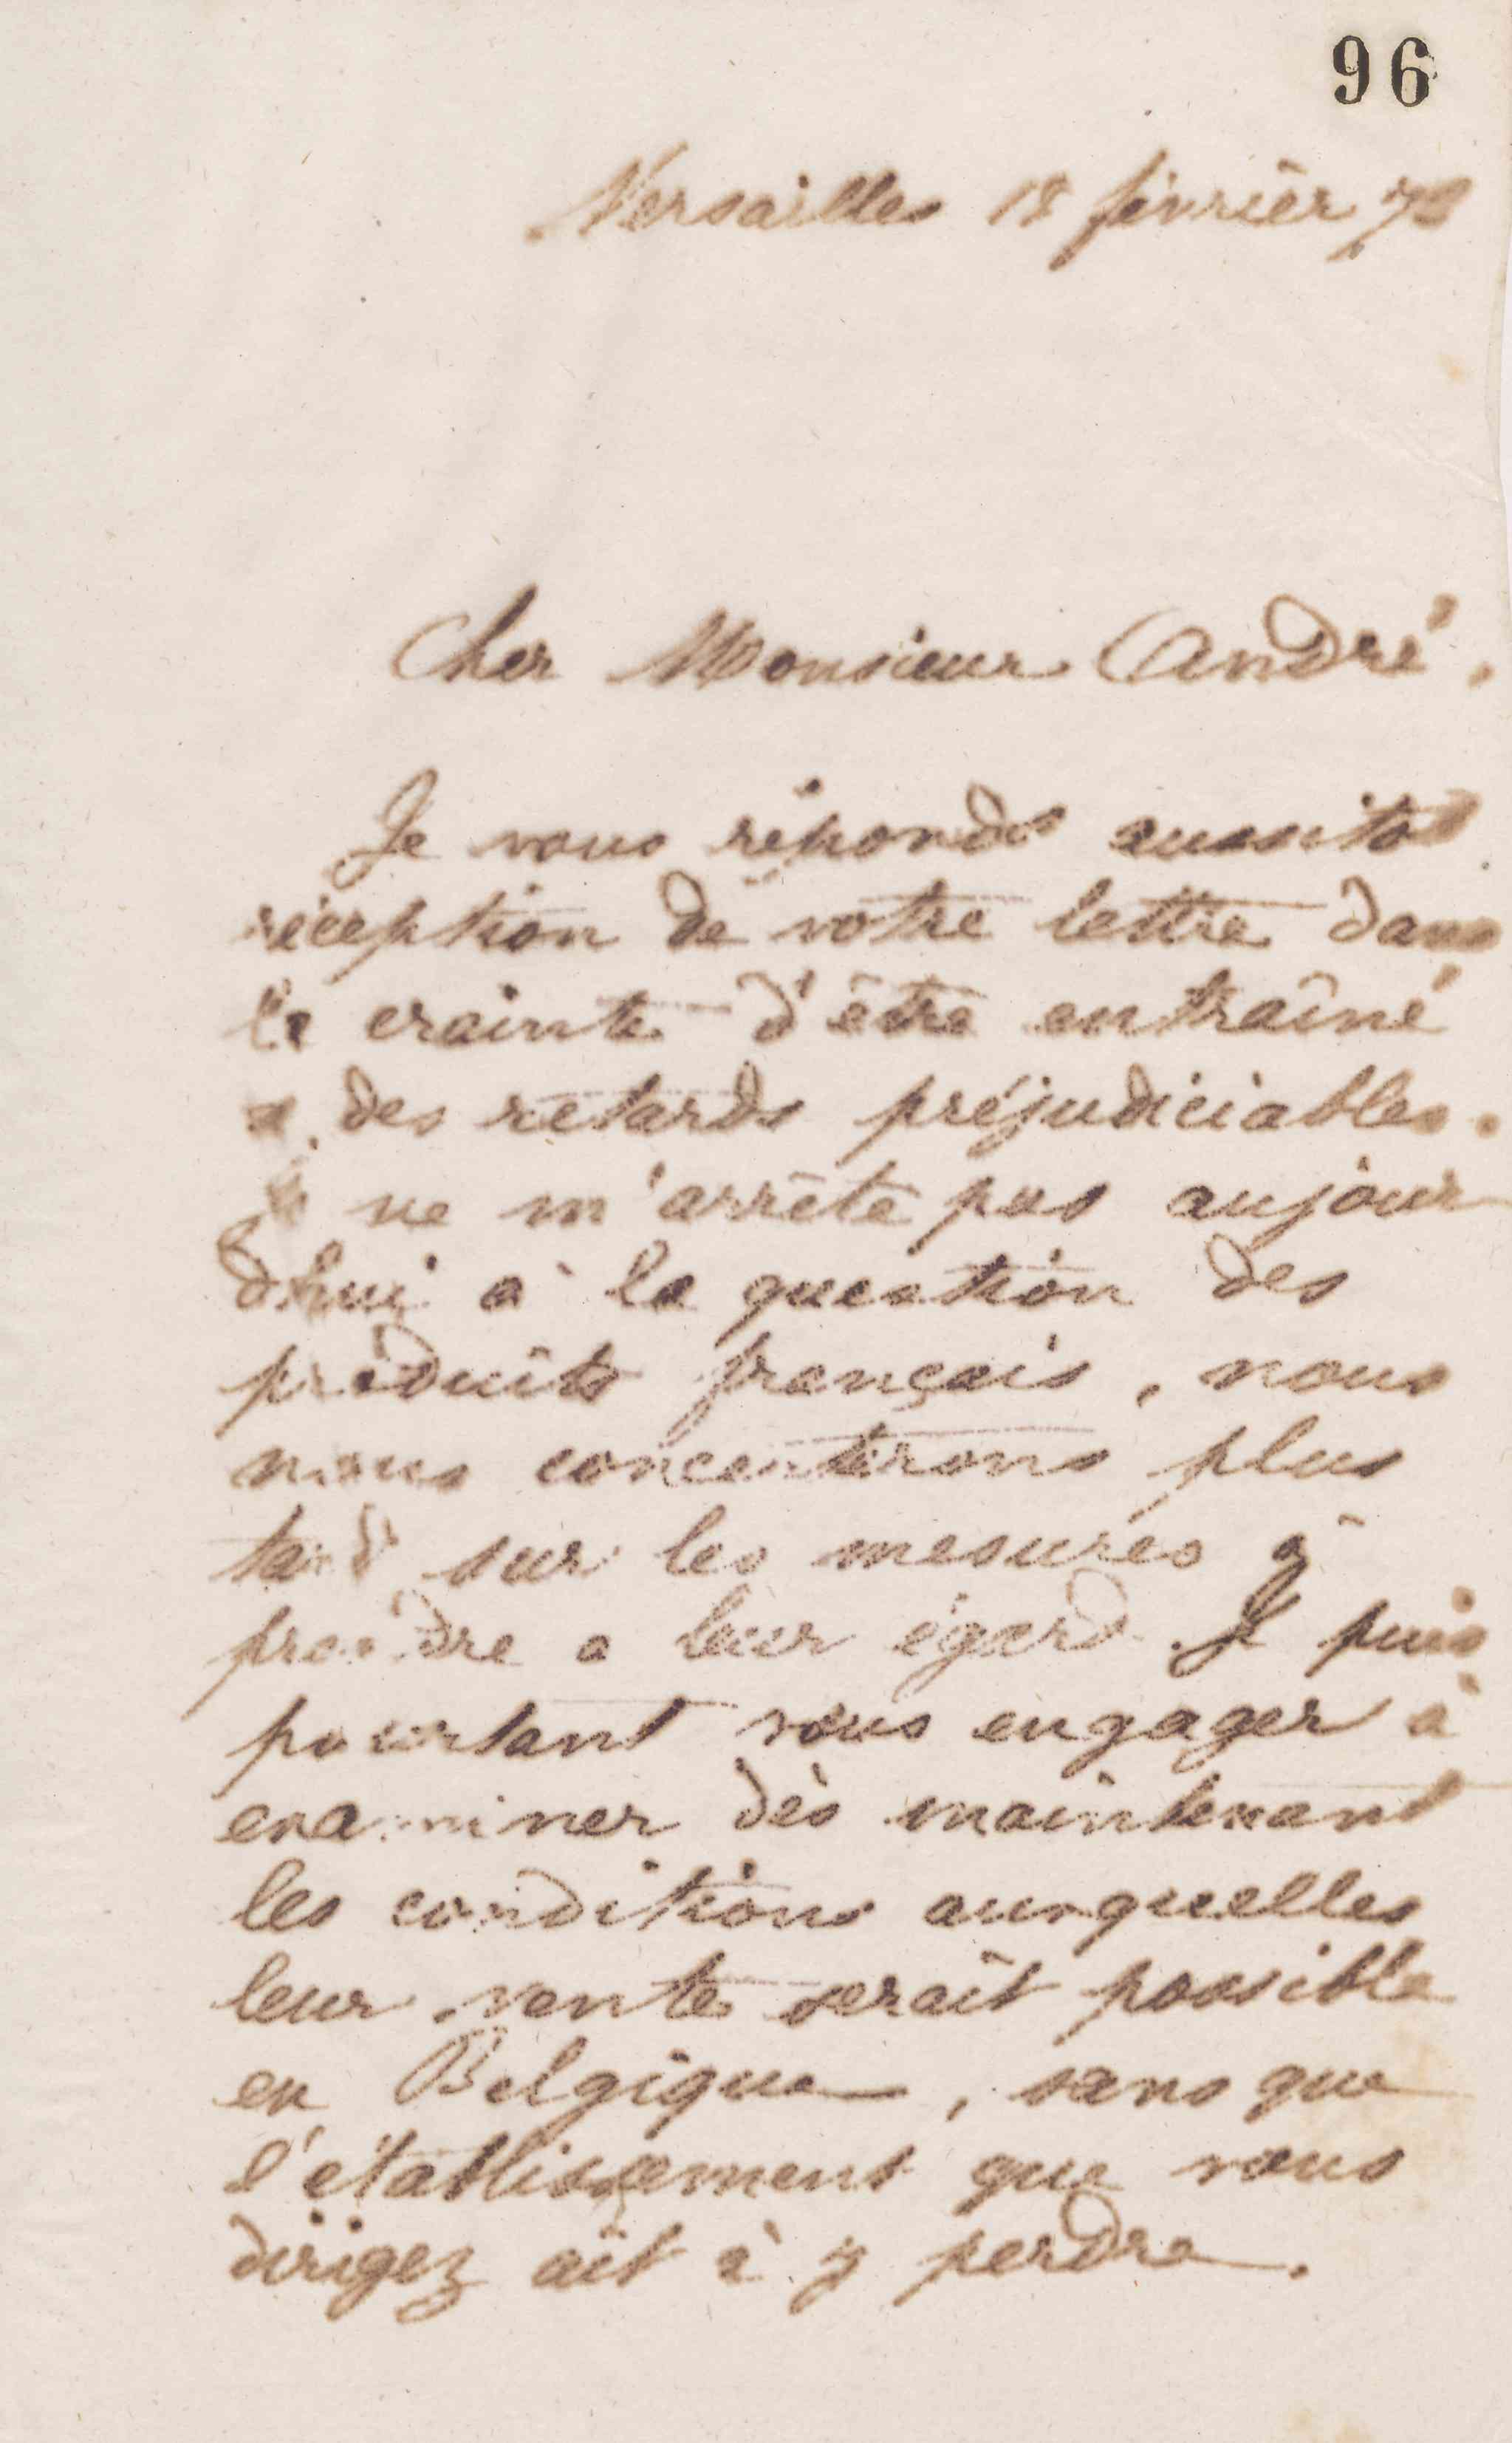 96
Versailles 18 février
Cher Monsieur André.
Je vous réponds aussitot
réception de votre lettre dans
la crainte d'être entraîné
à des retards préjudiciables.
Je ne m'arrête pas aujour
d'hui à la question des
produits français, nous
nous concerterons plus
tard sur les mesures à
prendre a leur égard. Je puis
pourtant vous engager à
examiner dès maintenant
les conditions auxquelles
leur vente serait possible
en Belgique, sans que
l'établissement que vous
dirigez ait à y perdre.